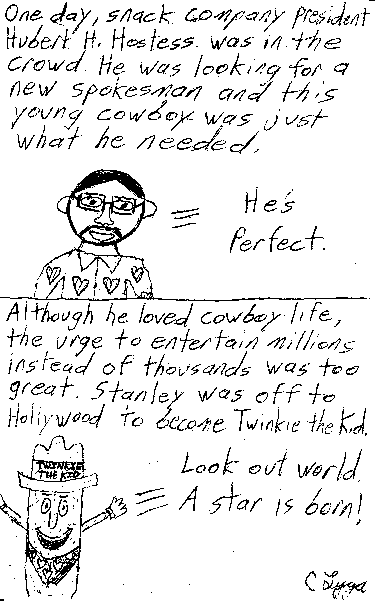 One day, snack company president
Hubert H. Hostess was in the
crowd. He was looking for a
new spokesman and this
young cowboy was just
what he needed.
He's
Perfect.
Although he loved cowboy life,
the urge to entertain millions
instead of thousands was too
great. Stanley was off to
Hollywood to become Twinkie the Kid.
TWINKIE
THE KID
Look out world.
A star is born!